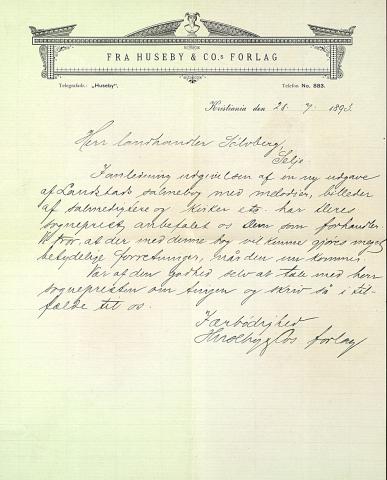 FRA HUSEBY & Co.s FORLAG
Telegrafadr.: „Huseby". Telefon No. 883.
Kristiania den 28 7 189
Herr landhandler Silvberg,
Selje
I anledning udgivelsen af en ny udgave
af Landstads salmebog med melodier, billeder
af salmedigtere og kirker etc. har Deres
sogneprest anbefalet os Dem som forhandler.
at der med denne bog vil kunne gjøres meget
betydelige forretninger, når den nu kommer.
Vær af den godhed selv at tale med herr
sognepresten om tingen og skriv så i til-
fælde til os.
Ærbødighed
Huseby & Cos forlag